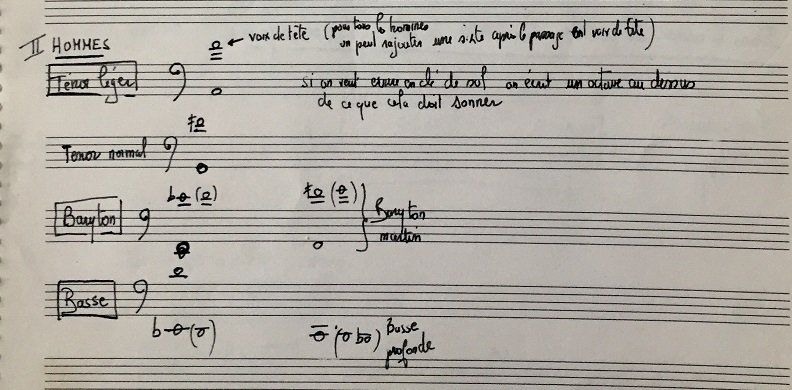 II HOMMES
voix de tête (pour tous les hommes
on peut rajouter une sixte après le passage en voix de tête)
Ténor léger
si on veut écrire en clé de sol on écrit un octave au dessus
de ce que cela doit sonner
Tenor normal
Baryton
Baryton
martin
Basse
Basse
profonde